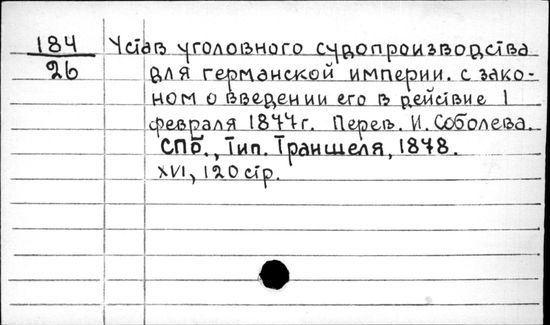 184
26
Устав уголовного судопроизводства
для германской империи. с зако-
ном о введении его в действие 1
февраля 1877г. Перев. И. Соболева.
СПб., Тип. Траншеля, 1878.
XVI, 120 стр.